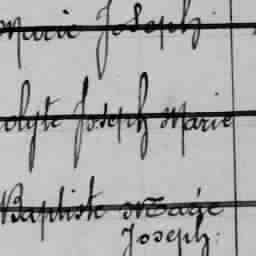 Marie Joseph
olyte Joseph Marie
Baptiste Marie
Joseph.